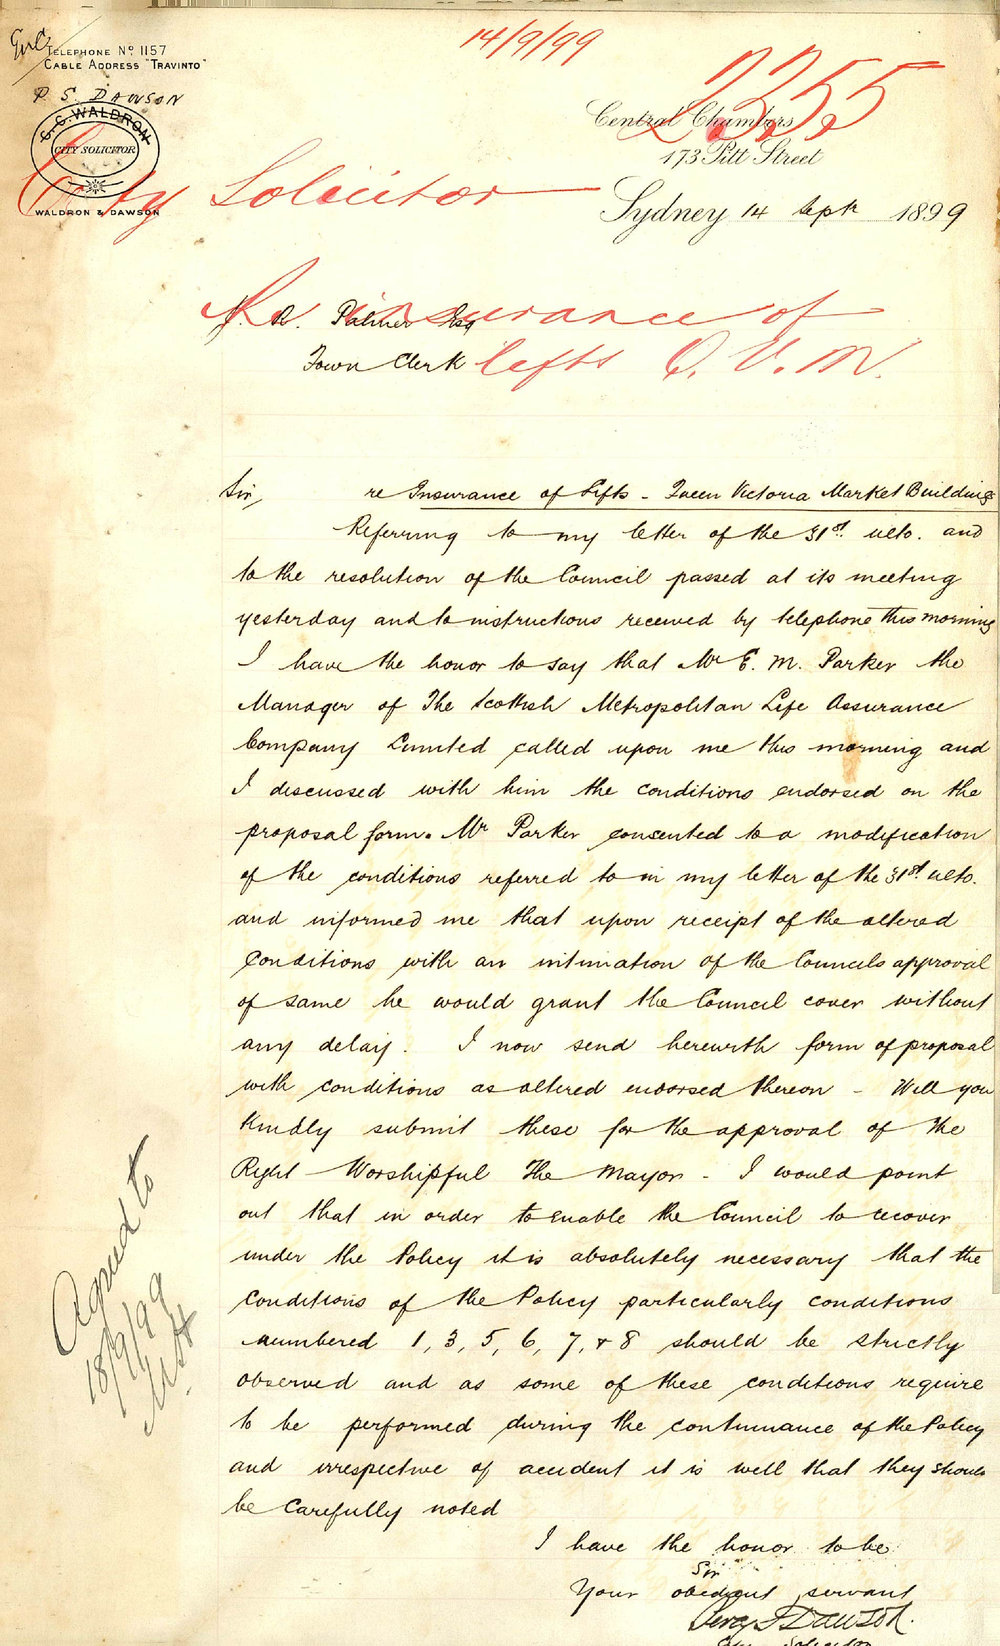 14/9/99
TELEPHONE No 1157
CABLE ADDRESS "TRAVINTO"
P. S. DAWSON
G.C. WALDRON
CITY SOLICITOR
WALDRON & DAWSON
2355
Central Chambers
173 Pitt Street
Sydney 14 Sept 1899
City Solicitor
Re insurance of
lifts Q. V. M.
Palmer Esq
Town Clerk
Sir, re Insurance of Lifts - Queen Victoria Market Buildings
Referring to my letter of the 31st. ulto. and
to the resolution of the Council passed at its meeting
yesterday and to instructions received by telephone this morning
I have the honor to say that Mr E. M. Parker the
Manager of The Scottish Metropolitan Life Assurance
Company Limited called upon me this morning and
I discussed with him the conditions endorsed on the
proposal form. Mr Parker consented to a modification
of the conditions referred to in my letter of the 31st. ulto.
and informed me that upon receipt of the altered
conditions with an intimation of the Councils approval
of same he would grant the Council cover without
any delay. I now send herewith form of proposal
with conditions as altered endorsed thereon - Will you
kindly submit these for the approval of the
Right Worshipful The Mayor - I would point
out that in order to enable the Council to recover
under the Policy it is absolutely necessary that the
conditions of the Policy particularly conditions
numbered 1, 3, 5, 6, 7, & 8 should be strictly
observed and as some of these conditions require
to be performed during the continuance of the Policy
and irrespective of accident it is well that they should
be carefully noted
I have the honor to be
Sir
Your obedient servant
Percy S Dawson.
City Solicitor
Agreed to
18/9/99